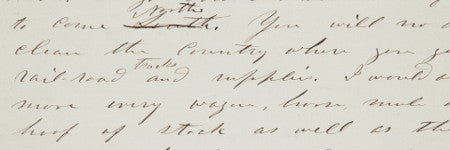 North
to come South. You will no d
clean the Country where you go
rail-road tracks and supplies. I would a
move every wagon, horse, mule a
hoof of stock as well as the